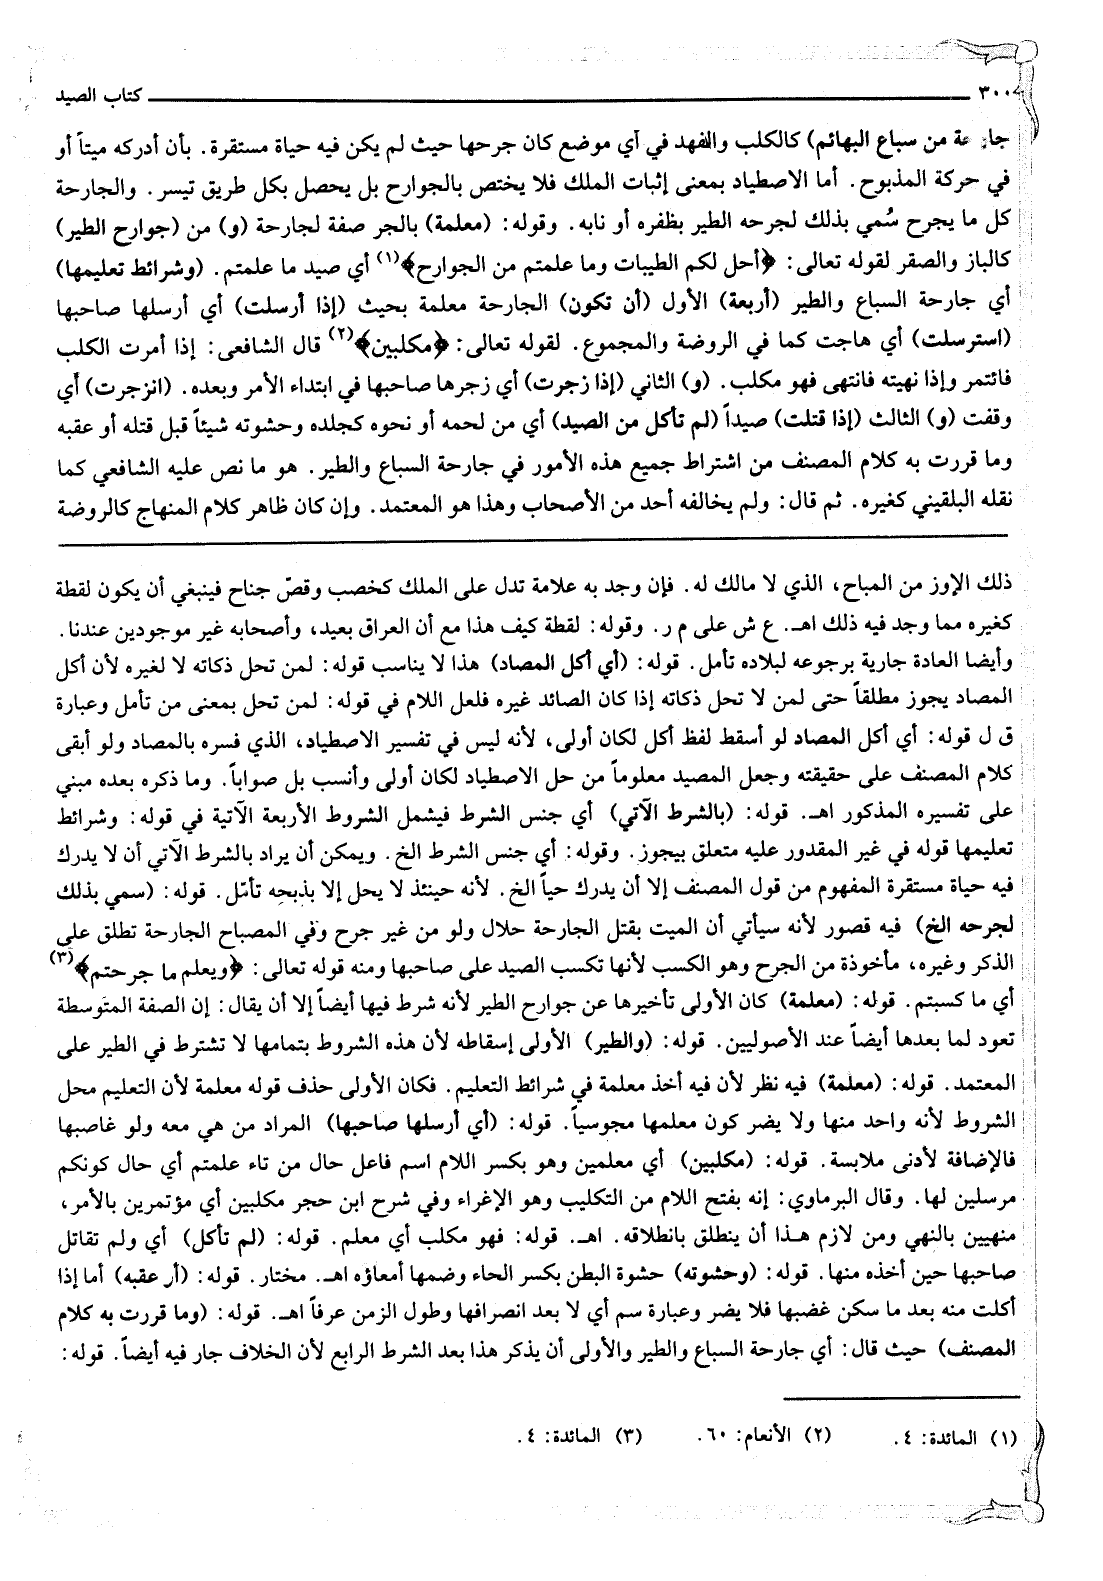 ٣٠٠ كتاب الصيد
جارحة من سباع البهائم) كالكلب والفهد في أي موضع كان جرحها حيث لم يكن فيه حياة مستقرة. بأن أدركه ميتاً أو
في حركة المذبوح. أما الاصطياد بمعنى إثبات الملك فلا يختص بالجوارح بل يحصل بكل طريق تيسر. والجارحة
كل ما يجرح سُمي بذلك لجرحه الطير بظفره أو نابه. وقوله: (معلمة) بالجر صفة لجارحة (و) من (جوارح الطير)
كالباز والصقر لقوله تعالى: ﴿أحل لكم الطيبات وما علمتم من الجوارح﴾(١) أي صيد ما علمتم. (وشرائط تعليمها)
أي جارحة السباع والطير (أربعة) الأول (أن تكون) الجارحة معلمة بحيث (إذا أرسلت) أي أرسلها صاحبها
(استرسلت) أي هاجت كما في الروضة والمجموع. لقوله تعالى: ﴿مكلبين﴾(٢) قال الشافعى: إذا أمرت الكلب
فائتمر وإذا نهيته فانتهى فهو مكلب. (و) الثاني (إذا زجرت) أي زجرها صاحبها في ابتداء الأمر وبعده. (انزجرت) أي
وقفت (و) الثالث (إذا قتلت) صيداً (لم تأكل من الصيد) أي من لحمه أو نحوه كجلده وحشوته شيئاً قبل قتله أو عقبه
وما قررت به كلام المصنف من اشتراط جميع هذه الأمور في جارحة السباع والطير. هو ما نص عليه الشافعي كما
نقله البلقيني كغيره. ثم قال: ولم يخالفه أحد من الأصحاب وهذا هو المعتمد. وإن كان ظاهر كلام المنهاج كالروضة
ذلك الإوز من المباح، الذي لا مالك له. فإن وجد به علامة تدل على الملك كخصب وقصّ جناح فينبغي أن يكون لقطة
كغيره مما وجد فيه ذلك اهـ. ع ش على م ر. وقوله: لقطة كيف هذا مع أن العراق بعيد، وأصحابه غير موجودين عندنا.
وأيضا العادة جارية برجوعه لبلاده تأمل. قوله: (أي أكل المصاد) هذا لا يناسب قوله: لمن تحل ذكاته لا لغيره لأن أكل
المصاد يجوز مطلقاً حتى لمن لا تحل ذكاته إذا كان الصائد غيره فلعل اللام في قوله: لمن تحل بمعنى من تأمل وعبارة
ق ل قوله: أي أكل المصاد لو أسقط لفظ أكل لكان أولى، لأنه ليس في تفسير الاصطياد، الذي فسره بالمصاد ولو أبقى
كلام المصنف على حقيقته وجعل المصيد معلوماً من حل الاصطياد لكان أولى وأنسب بل صواباً. وما ذكره بعده مبني
على تفسيره المذكور اهـ. قوله: (بالشرط الآتي) أي جنس الشرط فيشمل الشروط الأربعة الآتية في قوله: وشرائط
تعليمها قوله في غير المقدور عليه متعلق بيجوز. وقوله: أي جنس الشرط الخ. ويمكن أن يراد بالشرط الآتي أن لا يدرك
فيه حياة مستقرة المفهوم من قول المصنف إلا أن يدرك حياً الخ. لأنه حينئذ لا يحل إلا بذبحه تأمّل. قوله: (سمي بذلك
لجرحه الخ) فيه قصور لأنه سيأتي أن الميت بقتل الجارحة حلال ولو من غير جرح وفي المصباح الجارحة تطلق على
الذكر وغيره، مأخوذة من الجرح وهو الكسب لأنها تكسب الصيد على صاحبها ومنه قوله تعالى: ﴿ويعلم ما جرحتم﴾(٣)
أي ما كسبتم. قوله: (معلمة) كان الأولى تأخيرها عن جوارح الطير لأنه شرط فيها أيضاً إلا أن يقال: إن الصفة المتوسطة
تعود لما بعدها أيضاً عند الأصوليين. قوله: (والطير) الأولى إسقاطه لأن هذه الشروط بتمامها لا تشترط في الطير على
المعتمد. قوله: (معلمة) فيه نظر لأن فيه أخذ معلمة في شرائط التعليم. فكان الأولى حذف قوله معلمة لأن التعليم محل
الشروط لأنه واحد منها ولا يضر كون معلمها مجوسياً. قوله: (أي أرسلها صاحبها) المراد من هي معه ولو غاصبها
فالإضافة لأدنى ملابسة. قوله: (مكلبين) أي معلمين وهو بكسر اللام اسم فاعل حال من تاء علمتم أي حال كونكم
مرسلين لها. وقال البرماوي: إنه بفتح اللام من التكليب وهو الإغراء وفي شرح ابن حجر مكلبين أي مؤتمرين بالأمر،
منهيين بالنهي ومن لازم هذا أن ينطلق بانطلاقه. اهـ. قوله: فهو مكلب أي معلم. قوله: (لم تأكل) أي ولم تقاتل
صاحبها حين أخذه منها. قوله: (وحشوته) حشوة البطن بكسر الحاء وضمها أمعاؤه اهـ. مختار. قوله: (أر عقبه) أما إذا
أكلت منه بعد ما سكن غضبها فلا يضر وعبارة سم أي لا بعد انصرافها وطول الزمن عرفاً اهـ. قوله: (وما قررت به كلام
المصنف) حيث قال: أي جارحة السباع والطير والأولى أن يذكر هذا بعد الشرط الرابع لأن الخلاف جار فيه أيضاً. قوله:
(١) المائدة: ٤. (٢) الأنعام: ٦٠. (٣) المائدة: ٤.